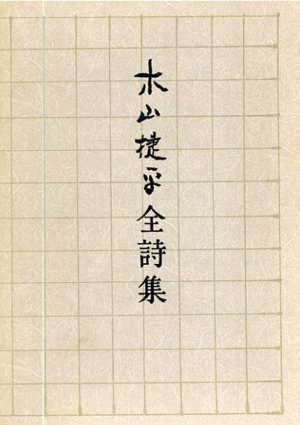 木山捷平全詩集